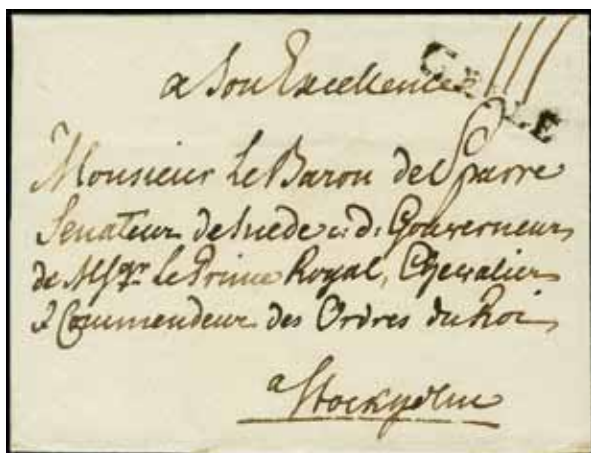 a Son Excellence
GEFLE
Monsieur Le Baron de Sparre
Senateur de Suede c. d. Gouverneur
de Msgr. Le Prince Royal, Chevalier
& Commendeur des Ordres du Roi
a Stockholm